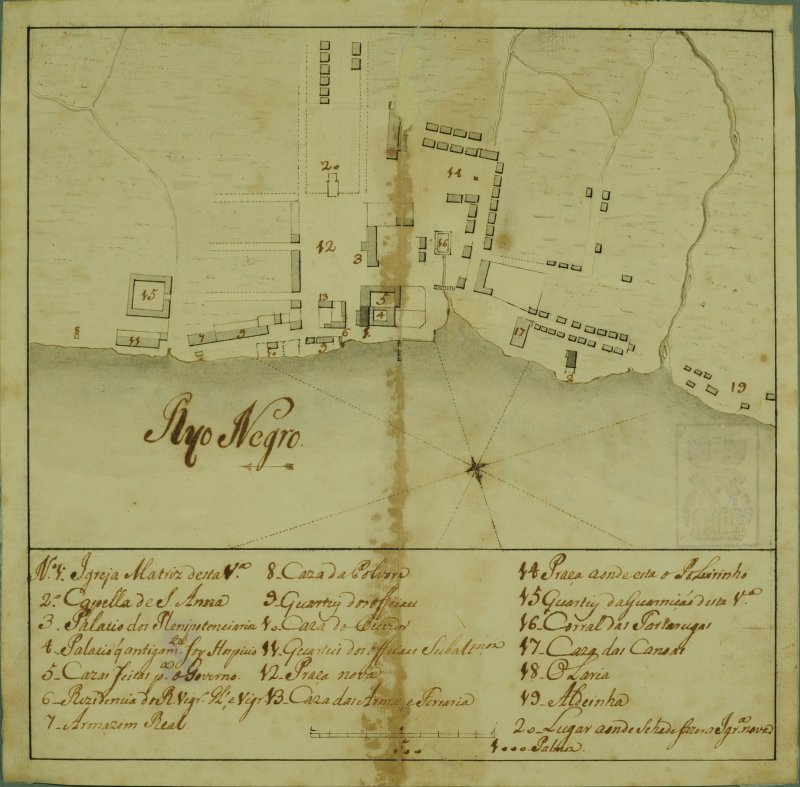 Ryo Negro.
Nº 1: Igreja Matriz desta V.ª
2º Capella de S. Anna
3 Palacio dos Plenipotenciarios
4 Palacio q̃ antigam.te foy Hospicio
5 Cazas feitas p.ª o Governo.
6 Rezidencia do R. Vigr.
7 Armazem Real
8 Caza da Polvora
9 Quarteis dos officiaes
10 Caza do Ouvidor
11 Quarteis dos officiaes Subalternos
12 Praça nova
13 Caza das Armas e Ferraria
14 Praça aonde esta o Pelourinho
15 Quarteis da Guarnição desta V.ª
16 Corral das Tartarugas
17 Caza das Canoas
18 Olaria
19 Aldeinha
20 Lugar aonde Sehade fazer a Igr.ª nova
500
1000 Palmos.